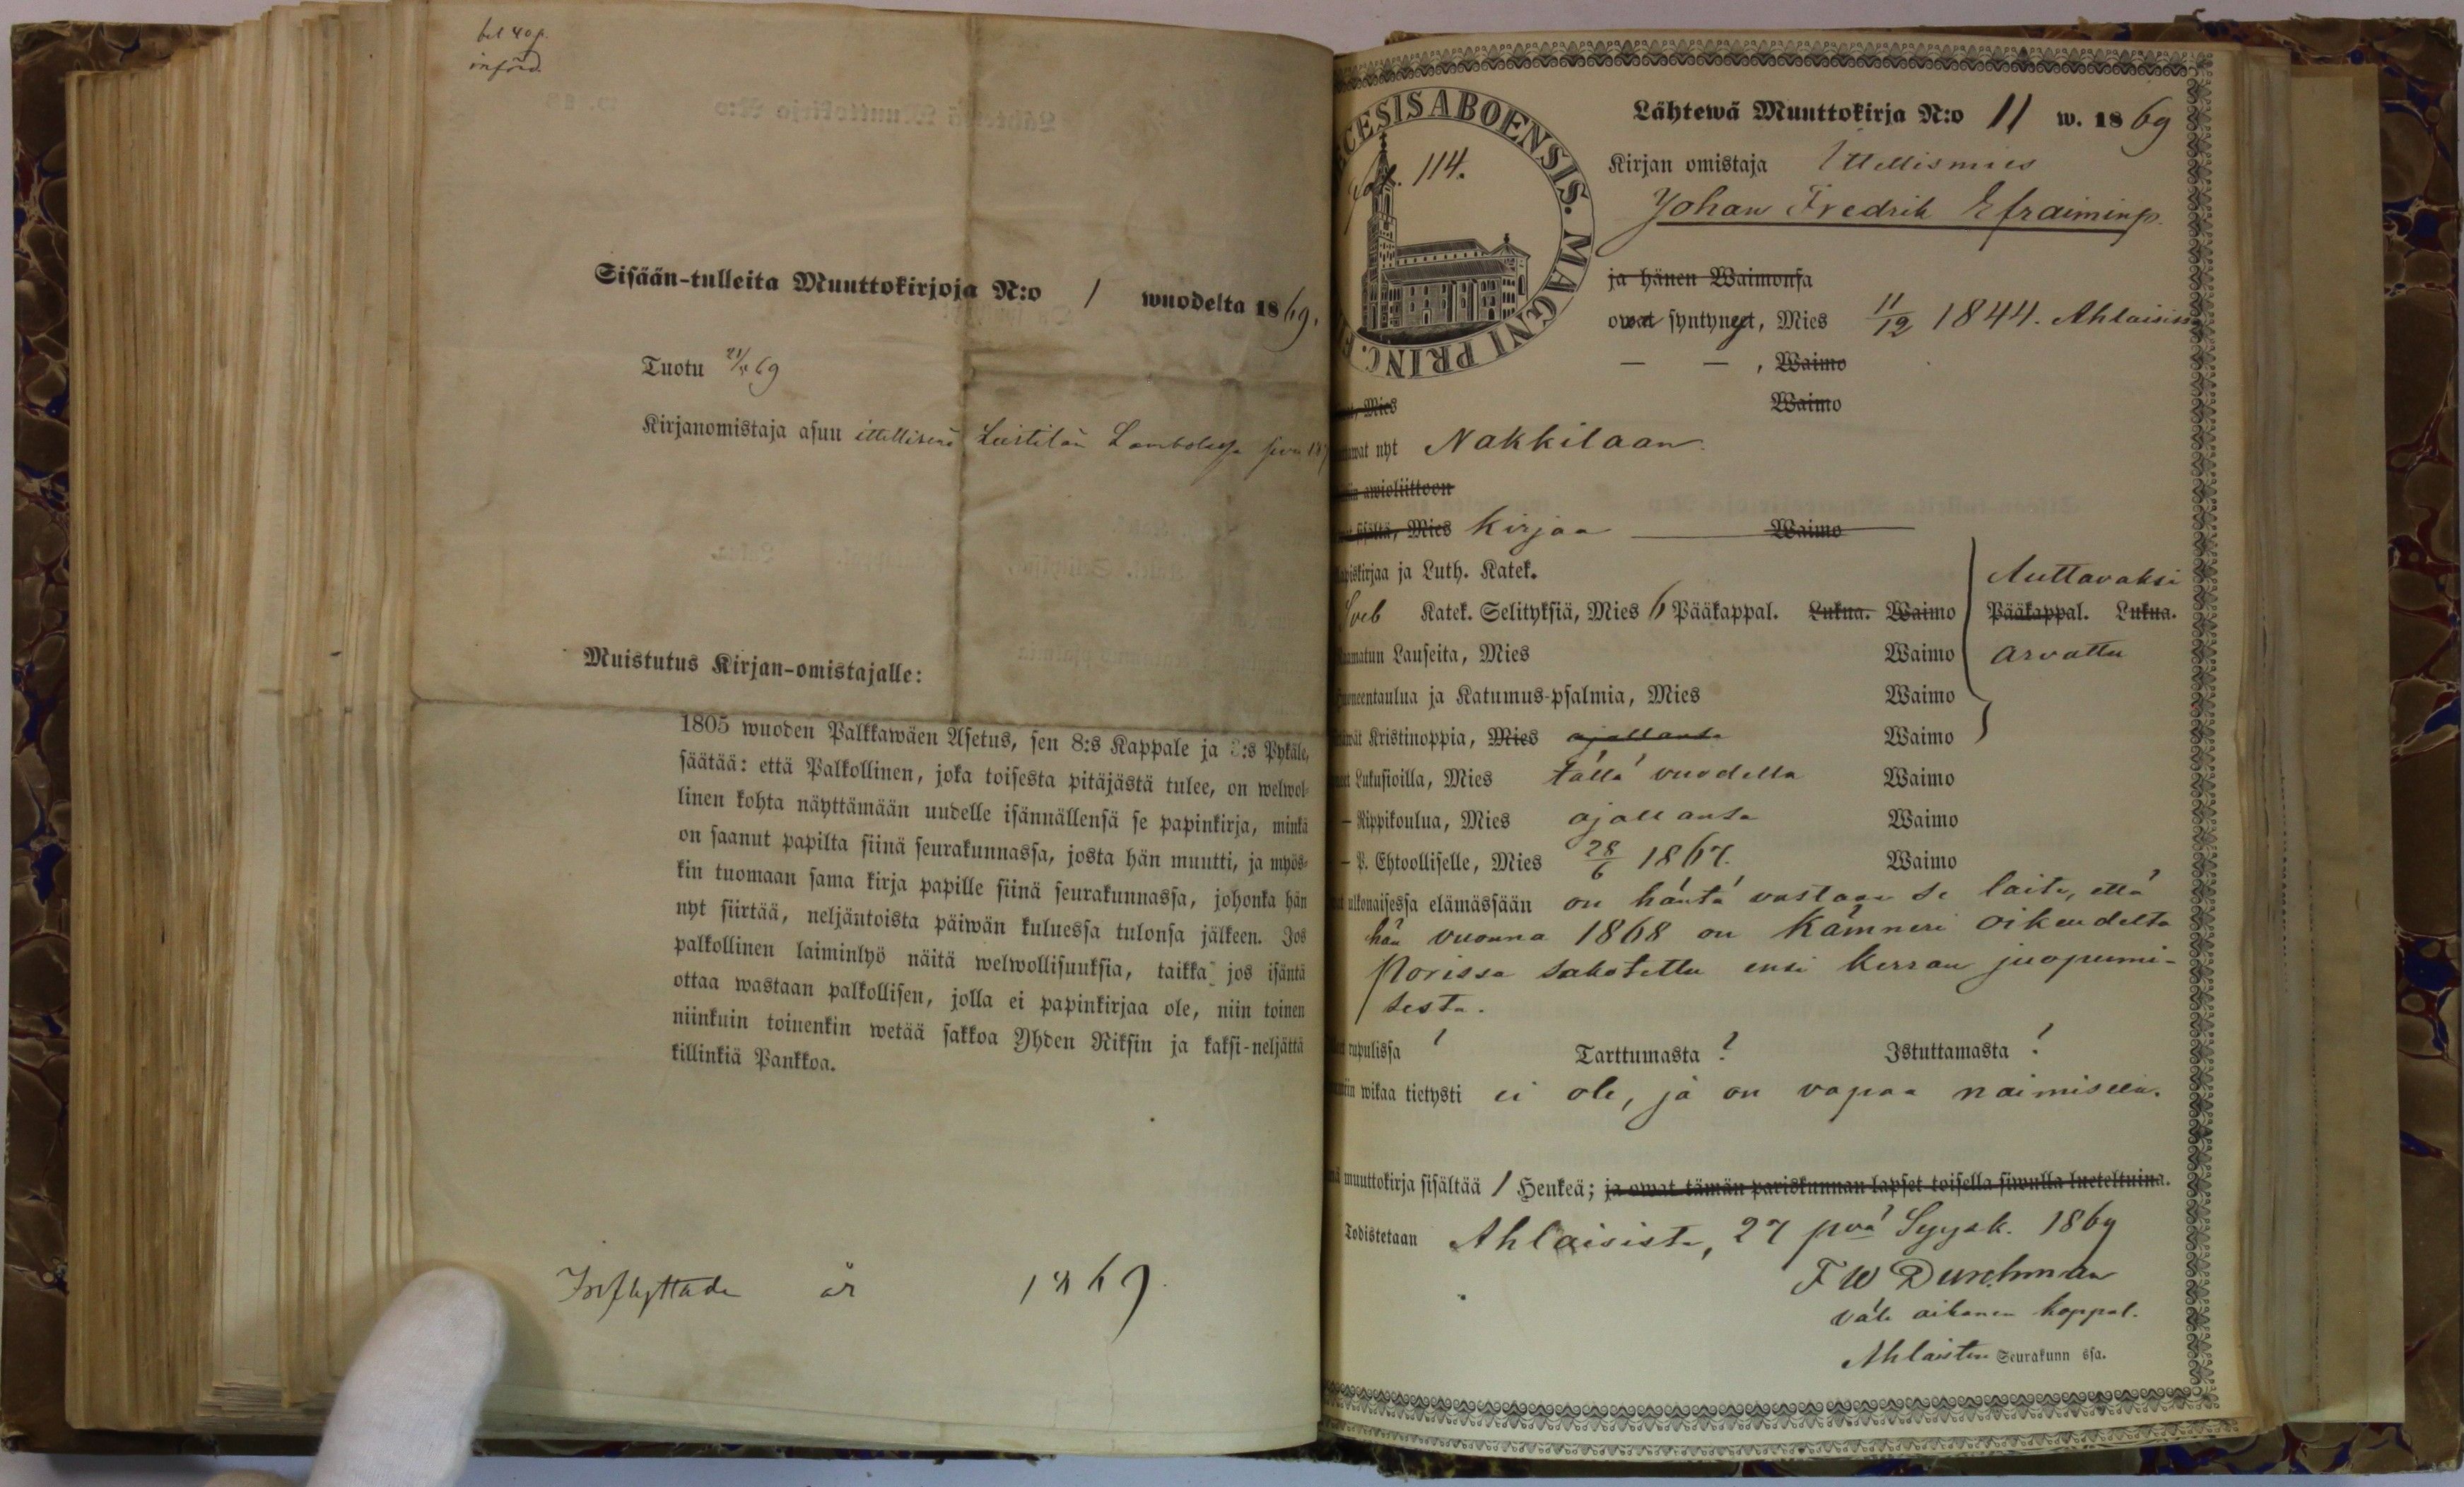 bel 40 p.
införd.
Sisään-tulleita Muuttokirjoja N:o 1 wuodelta 1869.
Tuotu 69
Kirjanomistaja asuu ittellisenä Leistilän
Muistutus Kirjan-omistajalle:
1805 wuoden Palkkawäen Asetus, sen 8:s Kappale ja :s Pykäle,
säätää: että Palkollinen, joka toisesta pitäjästä tulee, on welwol-
linen kohta näyttämään uudelle isännällensä se papinkirja, minkä
on saanut papilta siinä seurakunnassa, josta hän muutti, ja myös-
kin tuomaan sama kirja papille siinä seurakunnassa, johonka hän
nyt siirtää, neljäntoista päiwän kuluessa tulonsa jälkeen. Jos
palkollinen laiminlyö näitä welwollisuuksia, taikka jos isäntä
ottaa wastaan palkollisen, jolla ei papinkirjaa ole, niin toinen
niinkuin toinenkin wetää sakkoa Yhden Riksin ja kaksi-neljättä
killinkiä Pankkoa.
Inflyttade år 1869.
CESIS ABOENSIS. MAGNI PRINC.
114.
Lähtewä Muuttokirja N:o 11 w. 1869
Kirjan omistaja Ittellismies
Johan Fredrik Efraiminp.
ja hänen Waimonsa
owat syntyneet, Mies 11/12 1844. Ahlaisissa
— — , Waimo
Mies Waimo
wat nyt Nakkilaan
awioliittoon
sisältä, Mies kirjaa Waimo
piskirjaa ja Luth. Katek.
Sveb Katek. Selityksiä, Mies 6 Pääkappal. Lukua. Waimo
Auttavaksi
Pääkappal. Lukua.
arvattu
amatun Lauseita, Mies Waimo
neentaulua ja Katumus-psalmia, Mies Waimo
wät Kristinoppia, Mies ajallansa Waimo
Lukusioilla, Mies tällä vuodella Waimo
— Rippikoulua, Mies ajallansa Waimo
— P. Ehtoolliselle, Mies 28/6 1867. Waimo
ulkonaisessa elämässään on häntä vastaan se laite, että
hän vuonna 1868 on Kämneri oikeudelta
Porissa sakotettu ensi kerran juopumi-
sesta.
rupulissa ? Tarttumasta ? Istuttamasta ?
wikaa tietysti ei ole, ja on vapaa naimiseen.
muuttokirja sisältää 1 Henkeä; ja owat tämän pariskunnan lapset toisella siwulla lueteltuina.
Todistetaan Ahlaisista, 27 pvä Syysk. 1869
F W Durchman
väli aikanen kappal.
Ahlaisten Seurakunn ssa.